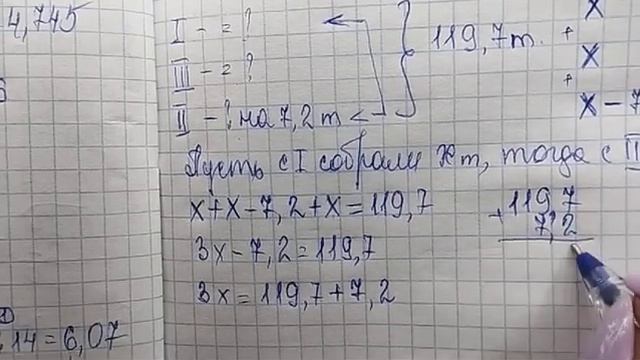 4,745
I - = ?
III - = ?
II - ? на 7,2 т <
119,7 т.
x
+
x
+
x - 7
Пусть с I собрали x т, тогда с II
x + x - 7,2 + x = 119,7
3x - 7,2 = 119,7
3x = 119,7 + 7,2
+ 119,7
7,2
14 = 6,07